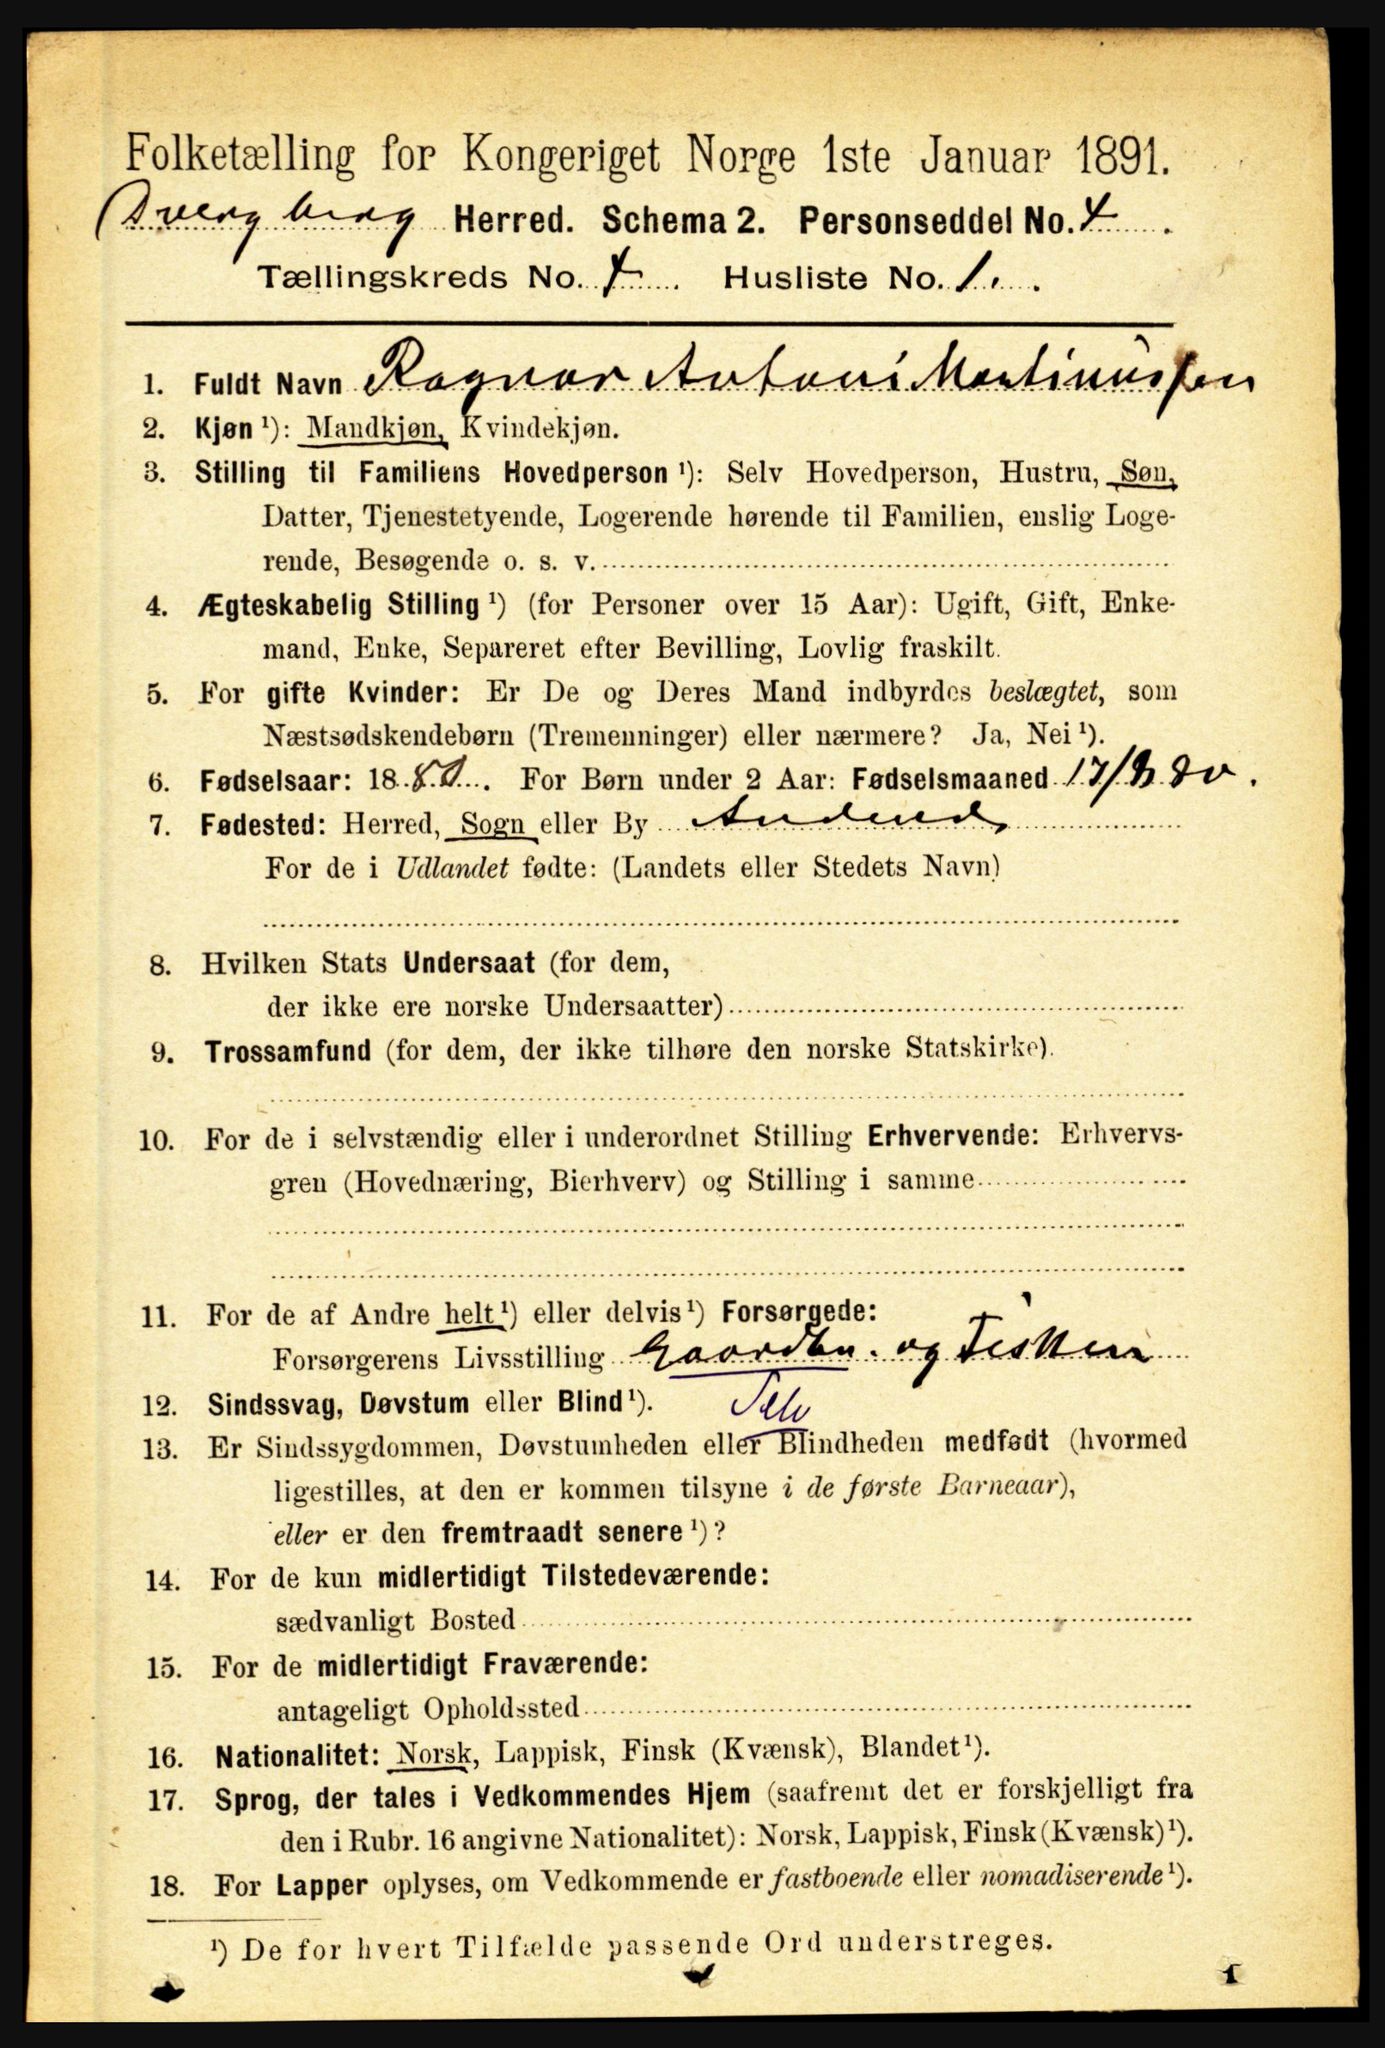 Folketælling for Kongeriget Norge 1ste Januar 1891.
Dverg berg Herred. Schema 2. Personseddel No. 4.
Tællingskreds No. 4. Husliste No. 1.
1. Fuldt Navn Ragnar Antoni Martinussen
2. Kjøn ¹): Mandkjøn, Kvindekjøn.
3. Stilling til Familiens Hovedperson ¹): Selv Hovedperson, Hustru, Søn,
Datter, Tjenestetyende, Logerende hørende til Familien, enslig Loge-
rende, Besøgende o. s. v.
4. Ægteskabelig Stilling ¹) (for Personer over 15 Aar): Ugift, Gift, Enke-
mand, Enke, Separeret efter Bevilling, Lovlig fraskilt.
5. For gifte Kvinder: Er De og Deres Mand indbyrdes beslægtet, som
Næstsødskendebørn (Tremenninger) eller nærmere? Ja, Nei ¹).
6. Fødselsaar: 18 . For Børn under 2 Aar: Fødselsmaaned
7. Fødested: Herred, Sogn eller By Andenes
For de i Udlandet fødte: (Landets eller Stedets Navn)
8. Hvilken Stats Undersaat (for dem,
der ikke ere norske Undersaatter)
9. Trossamfund (for dem, der ikke tilhøre den norske Statskirke).
10. For de i selvstændig eller i underordnet Stilling Erhvervende: Erhvervs-
gren (Hovednæring, Bierhverv) og Stilling i samme
11. For de af Andre helt ¹) eller delvis ¹) Forsørgede:
Forsørgerens Livsstilling Gaardbr. og Fisker
12. Sindssvag, Døvstum eller Blind ¹). Selv
13. Er Sindssygdommen, Døvstumheden eller Blindheden medfødt (hvormed
ligestilles, at den er kommen tilsyne i de første Barneaar),
eller er den fremtraadt senere ¹)?
14. For de kun midlertidigt Tilstedeværende:
sædvanligt Bosted
15. For de midlertidigt Fraværende:
antageligt Opholdssted
16. Nationalitet: Norsk, Lappisk, Finsk (Kvænsk), Blandet ¹).
17. Sprog, der tales i Vedkommendes Hjem (saafremt det er forskjelligt fra
den i Rubr. 16 angivne Nationalitet): Norsk, Lappisk, Finsk (Kvænsk) ¹).
18. For Lapper oplyses, om Vedkommende er fastboende eller nomadiserende ¹).
¹) De for hvert Tilfælde passende Ord understreges.